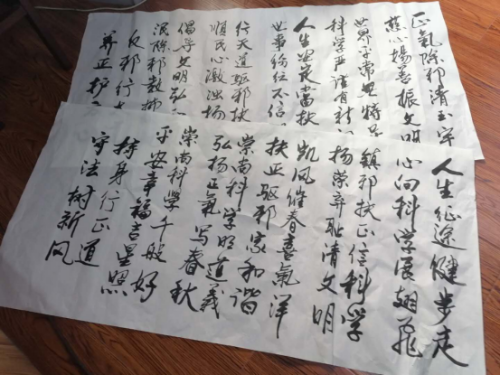 正氣除邪清玉宇
慈心揚善振文明
世界平常無特
科学严谨有新
人生坚定富扶
世事纷纭不信
行天道驱邪扶
顺民心激浊扬
倡导文明弘
泯除邪教
反邪行
养正护
人生征途健步走
心向科学展翅飛
镇邪扶正信科学
扬荣弃耻清文明
凯风催春喜氣洋
扶正驱邪家和谐
崇尚科学明道義
弘扬正氣写春秋
崇尚科学千般好
平安幸福吉星照
修身行正道
守法树新风